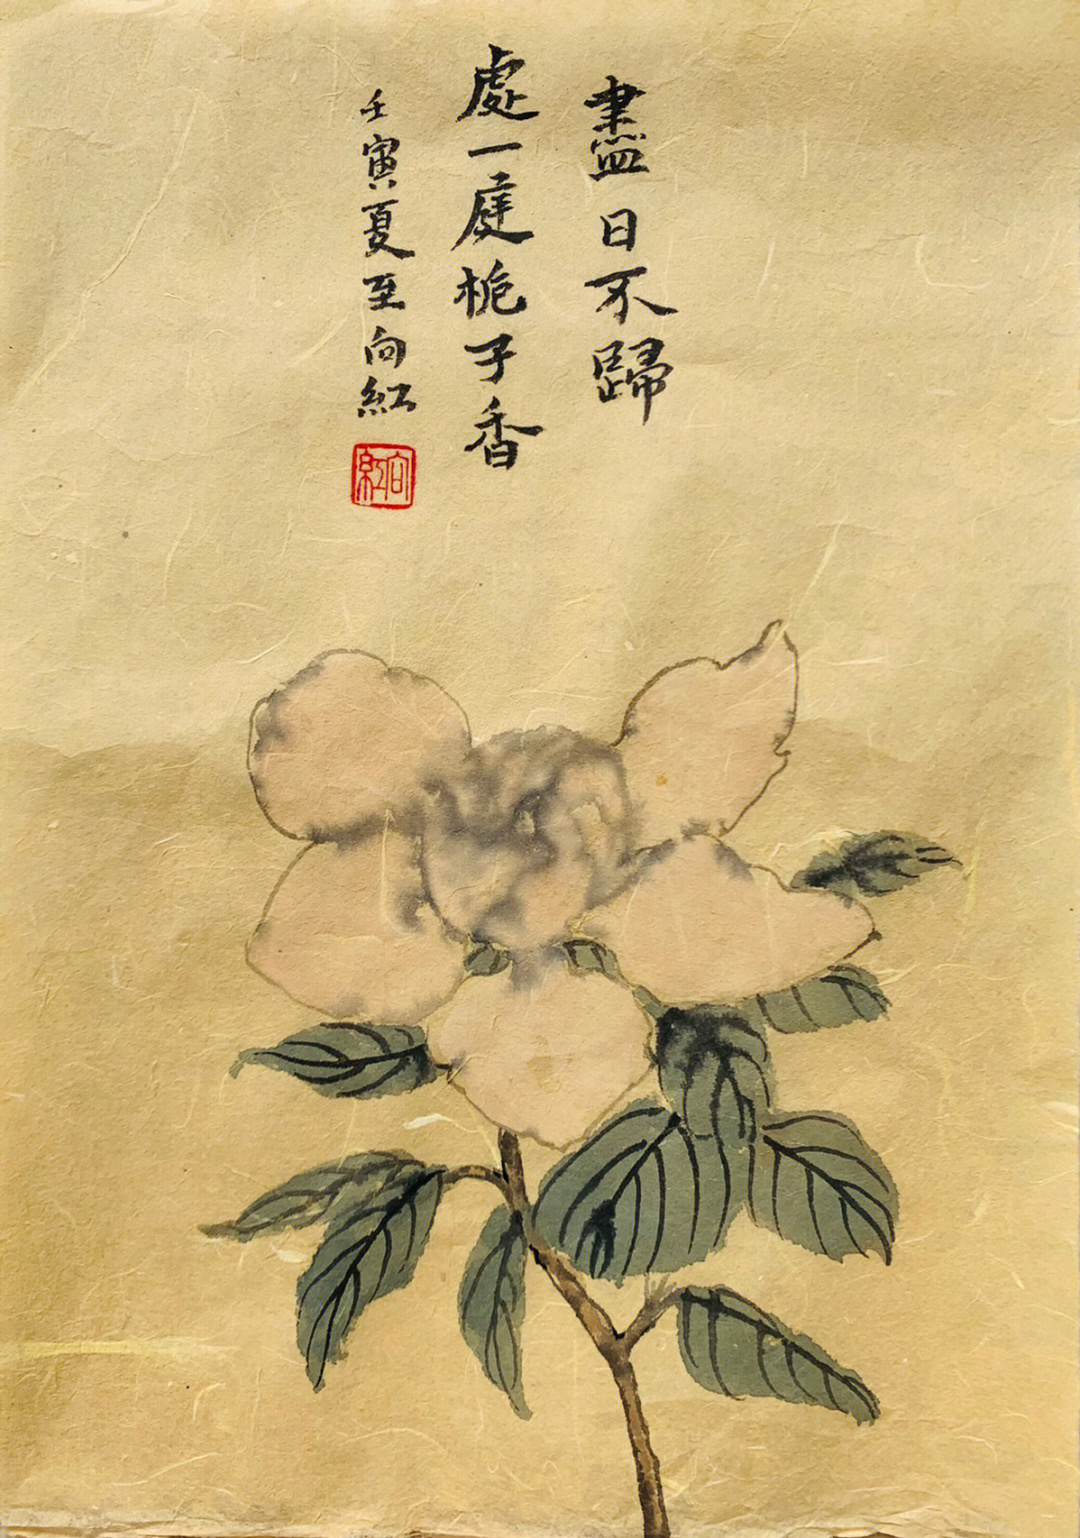 盡日不歸
處一庭栀子香
壬寅夏至向紅
向紅